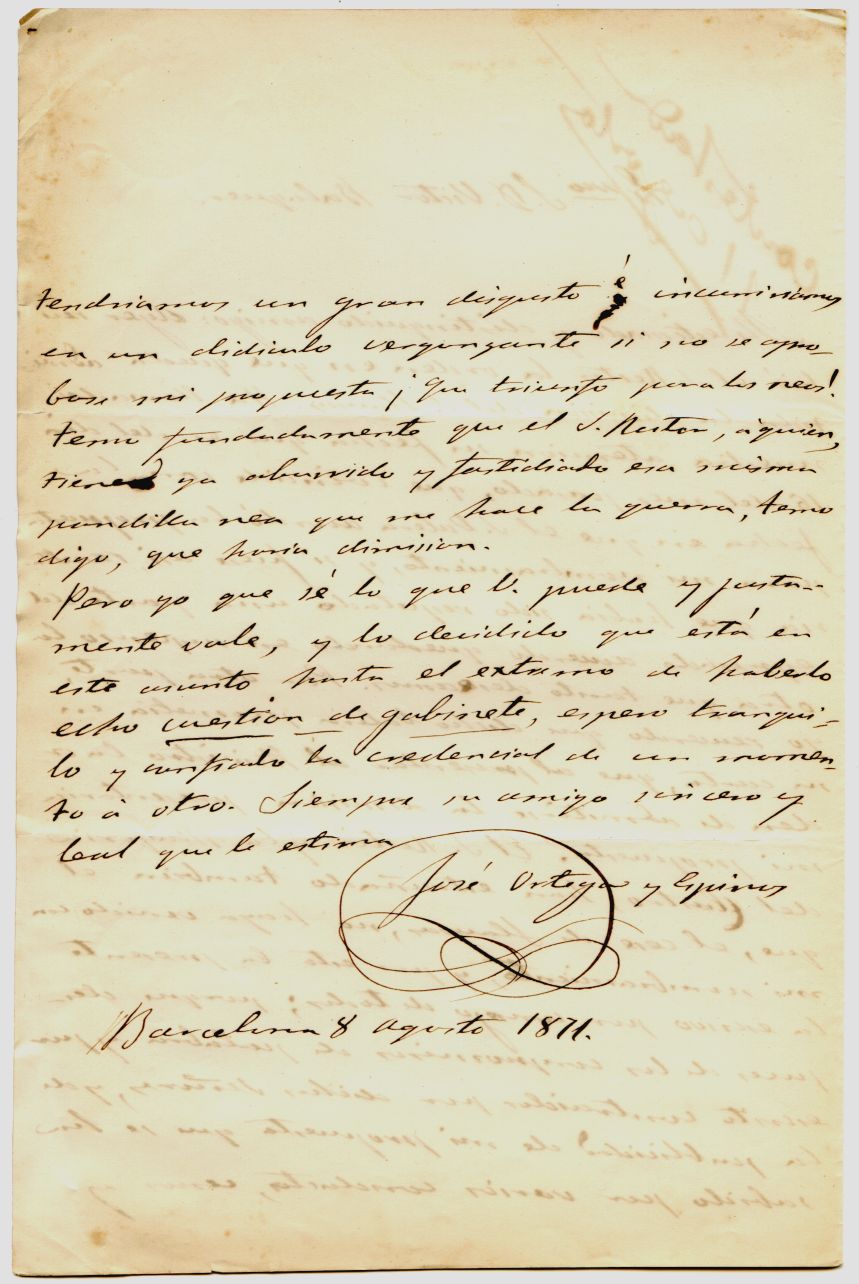 tendriamos un gran disgusto é incurririamos
en un didiculo vergunzante si no se apro-
base mi propuesta ¡que triunfo para los neos!
temo fundadamente que el S. Rector, á quien,
tiene ya aburrido y fastidiado esa misma
pandilla nea que me hace la guerra, temo
digo, que haria dimision.
Pero yo que sé lo que V. puede y justa-
mente vale, y lo decidido que está en
este asunto hasta el extremo de haberlo
echo cuestion de gabinete, espero tranqui-
lo y confiado la credencial de un momen-
to á otro. Siempre su amigo sincero y
leal que le estima
José Ortega y Espinos
Barcelona 8 Agosto 1871.